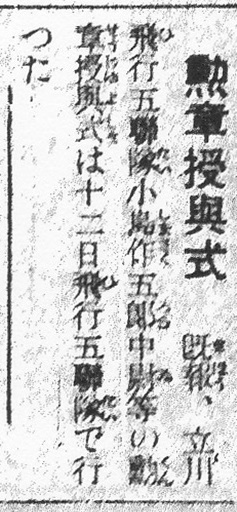 勲章授與式 既報、立川
飛行五聯隊小島作五郎中尉等の勲
章授與式は十二日飛行五聯隊で行
つた